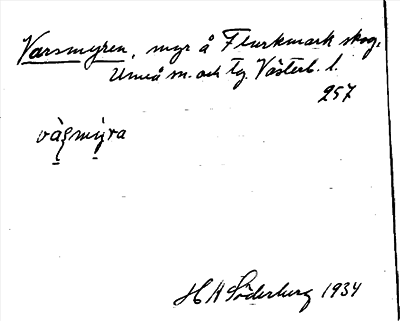 Varsmyren, myr å Flurkmark skog,
Umeå sn. och tg. Västerb. l.
257
vàʂmýra
H H Söderberg 1934